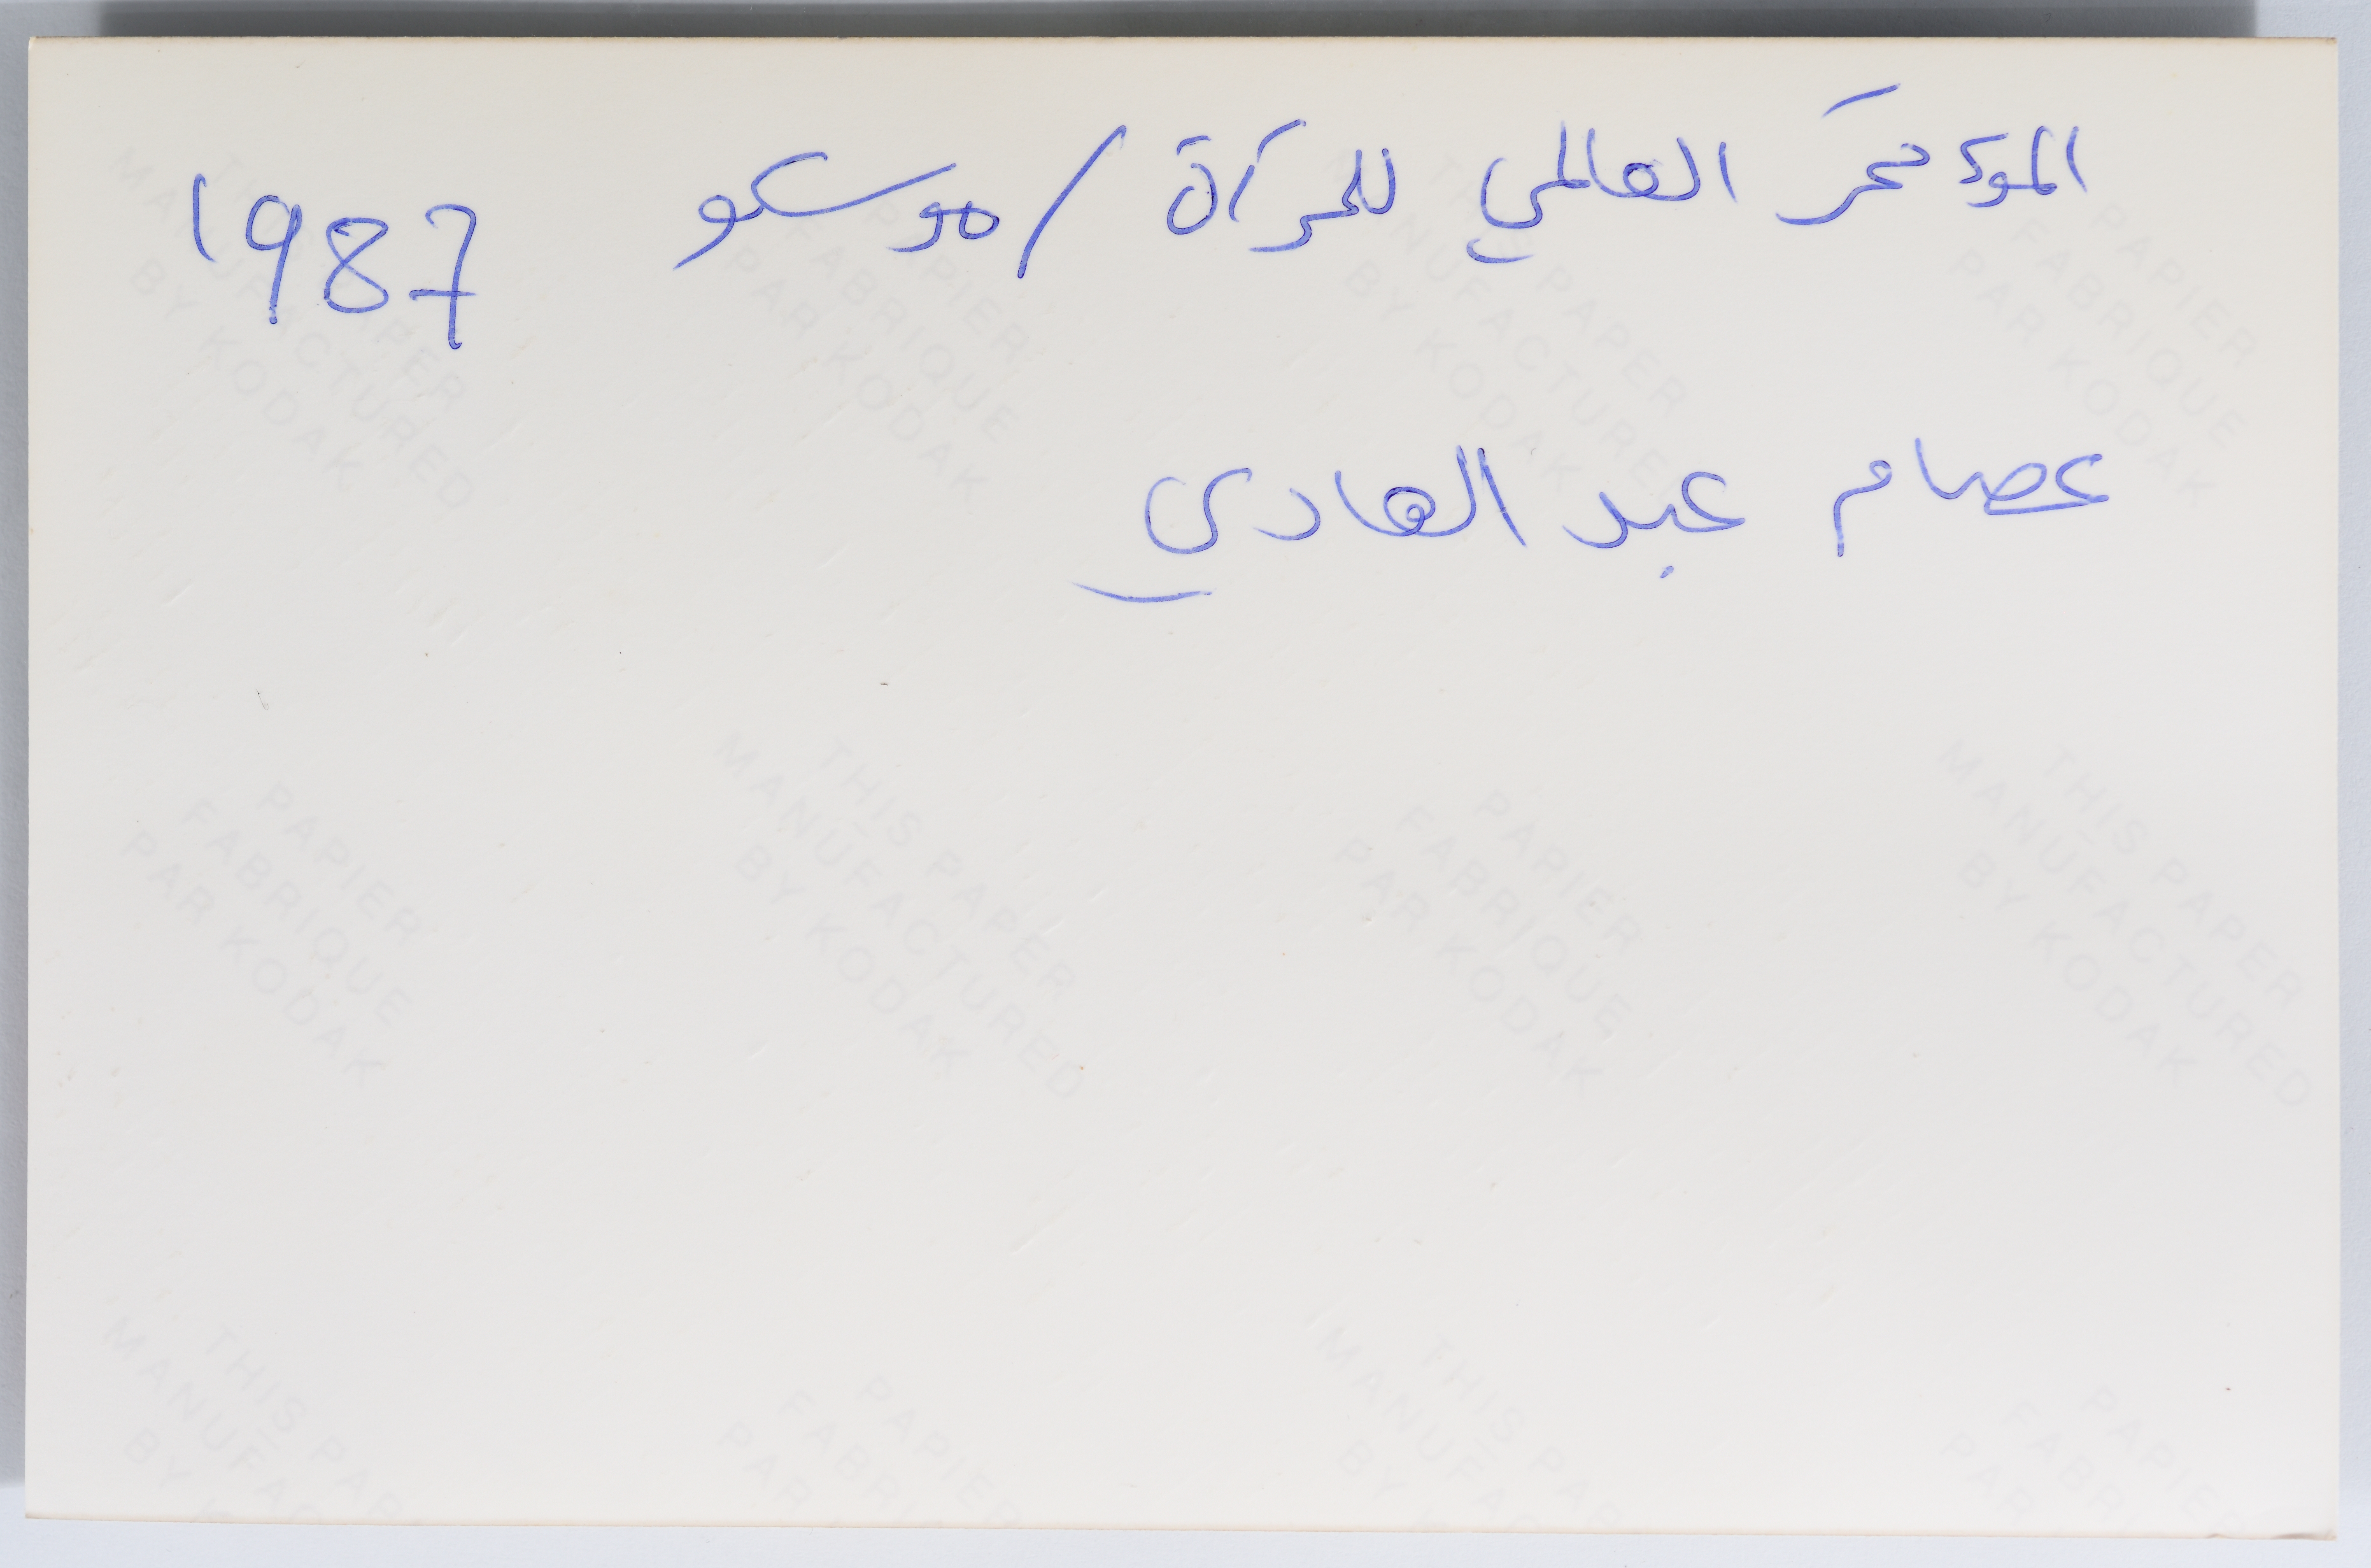 المؤتمر العالمي للمرأة / موسكو 1987
عصام عبد الهادي
THIS PAPER
MANUFACTURED
BY KODAK
PAPIER
FABRIQUE
PAR KODAK
THIS PAPER
MANUFACTURED
BY KODAK
PAPIER
FABRIQUE
PAR KODAK
PAPIER
FABRIQUE
PAR KODAK
THIS PAPER
MANUFACTURED
BY KODAK
PAPIER
FABRIQUE
PAR KODAK
THIS PAPER
MANUFACTURED
BY KODAK